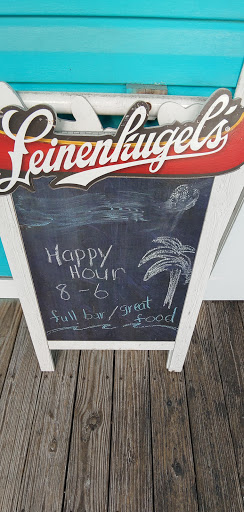 Leinenkugel's
Happy
Hour
8-6
full bar/great
food